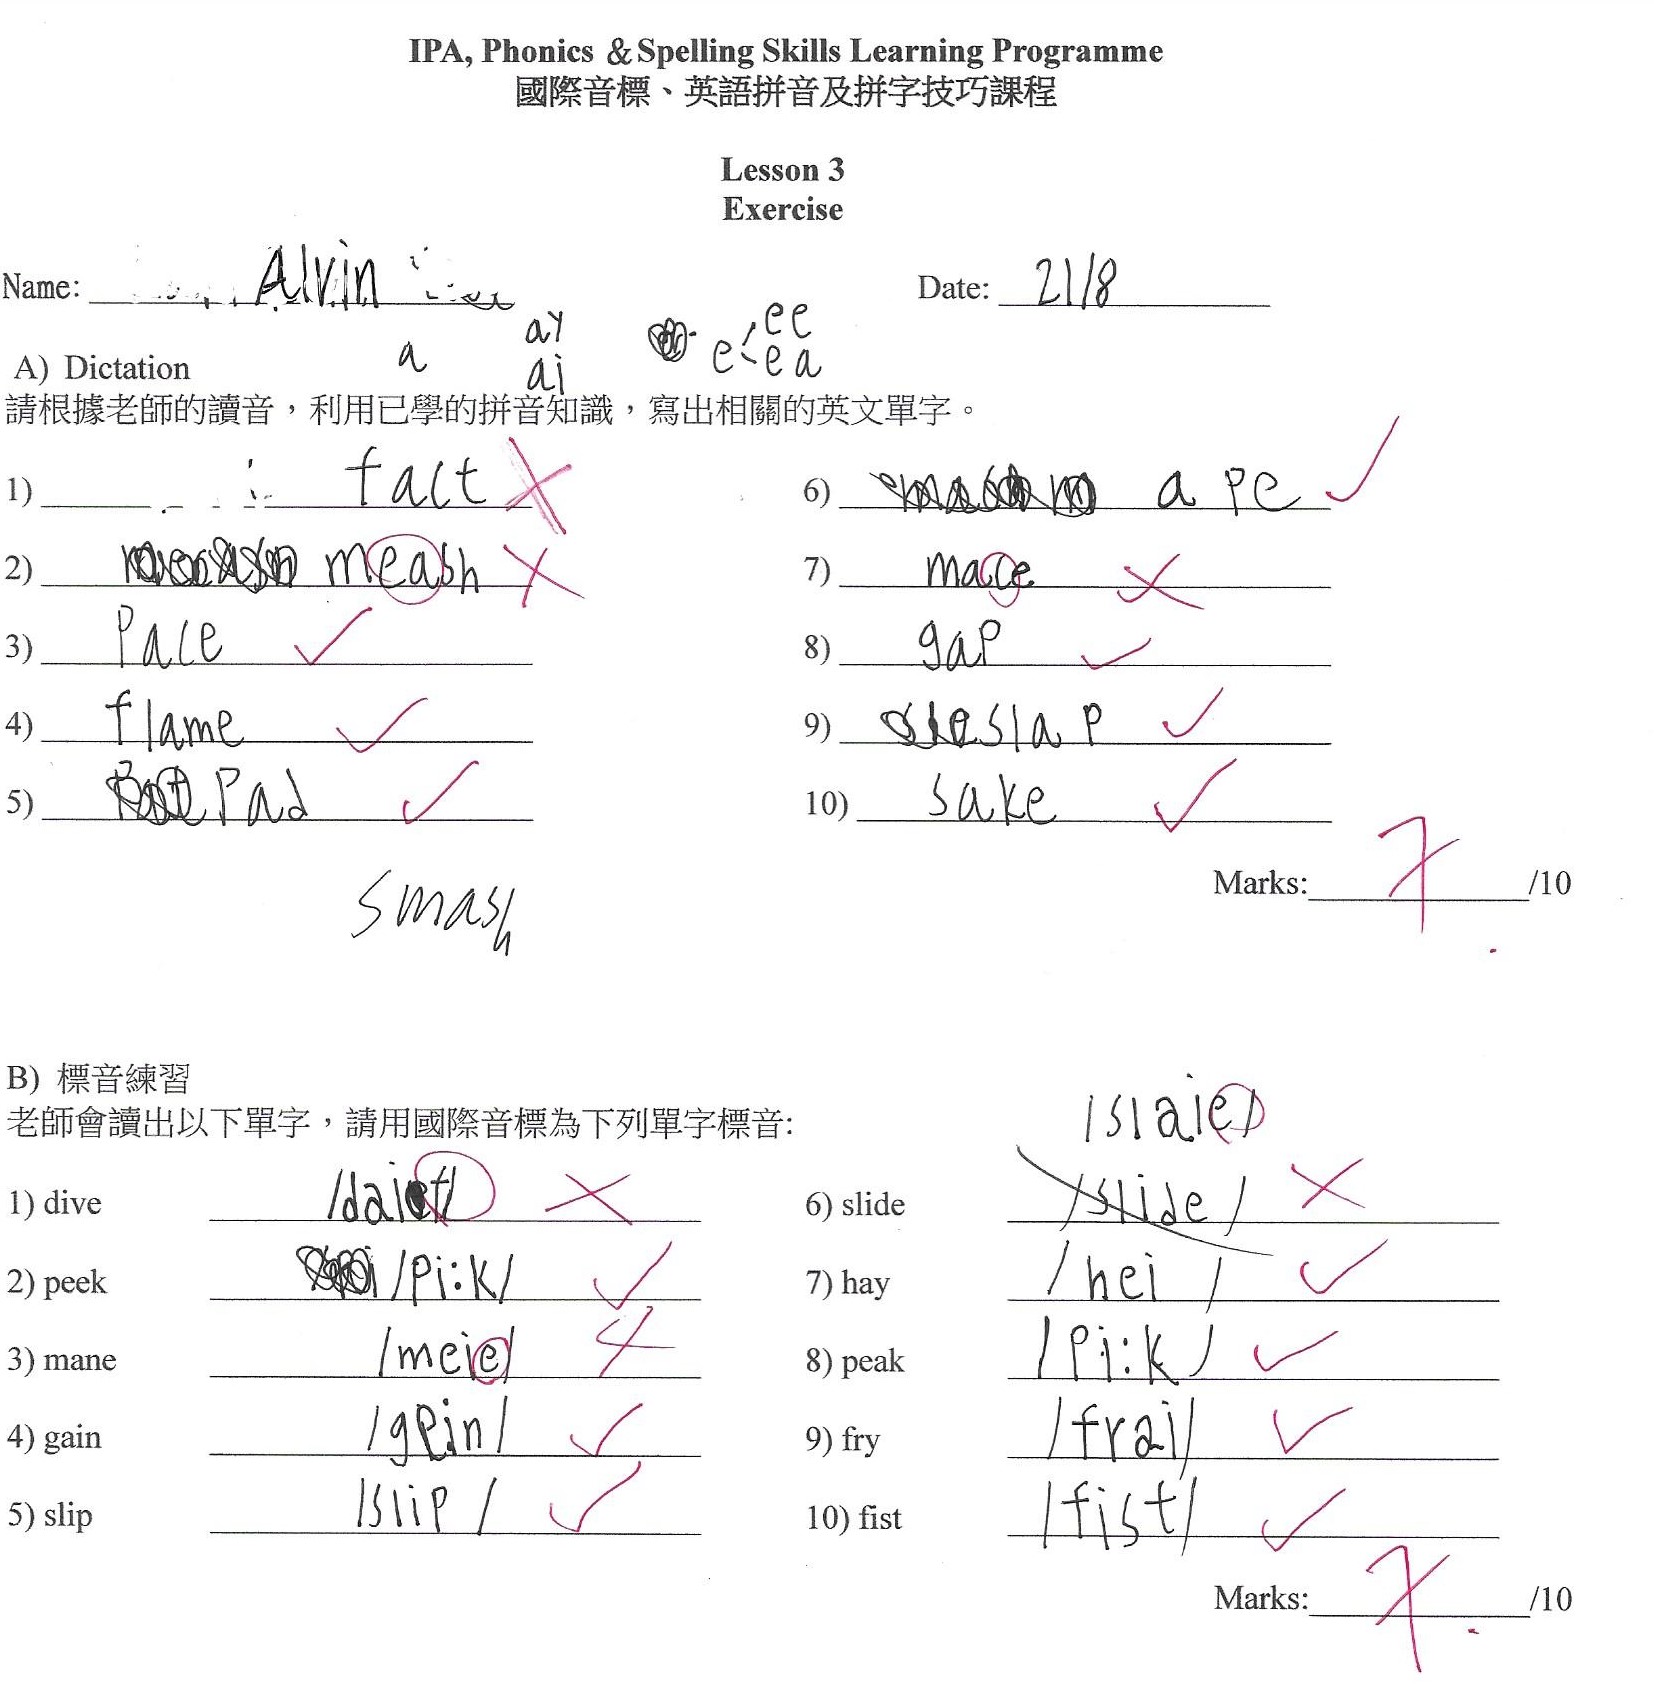 IPA, Phonics & Spelling Skills Learning Programme
國際音標、英語拼音及拼字技巧課程
Lesson 3
Exercise
Name: Alvin Date: 21/8
ay
ee
a
e
ea
ai
A) Dictation
請根據老師的讀音，利用已學的拼音知識，寫出相關的英文單字。
1) fact 6) ape
2) meash 7) mace
3) pace 8) gap
4) flame 9) slap
5) pad 10) sake
Marks: 7 /10
smash
B) 標音練習
老師會讀出以下單字，請用國際音標為下列單字標音:
/slaie/
1) dive 6) slide /slide/
2) peek /pi:k/ 7) hay /hei/
3) mane /meie/ 8) peak /pi:k/
4) gain /gein/ 9) fry /frai/
5) slip /slip/ 10) fist /fist/
Marks: 7 /10